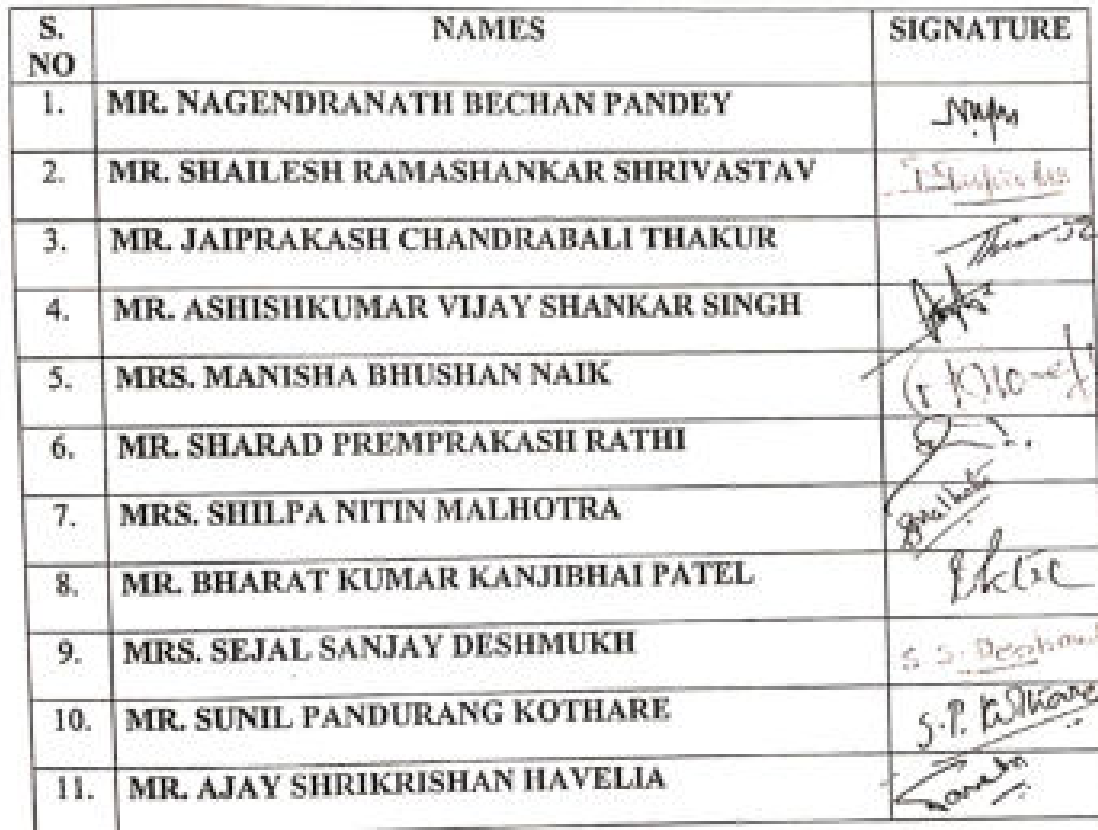 S. NO NAMES SIGNATURE
1. MR. NAGENDRANATH BECHAN PANDEY
2. MR. SHAILESH RAMASHANKAR SHRIVASTAV
3. MR. JAIPRAKASH CHANDRABALI THAKUR
4. MR. ASHISHKUMAR VIJAY SHANKAR SINGH
5. MRS. MANISHA BHUSHAN NAIK
6. MR. SHARAD PREMPRAKASH RATHI
7. MRS. SHILPA NITIN MALHOTRA
8. MR. BHARAT KUMAR KANJIBHAI PATEL
9. MRS. SEJAL SANJAY DESHMUKH S. S. Deshmukh
10. MR. SUNIL PANDURANG KOTHARE S.P. Kothare
11. MR. AJAY SHRIKRISHAN HAVELIA